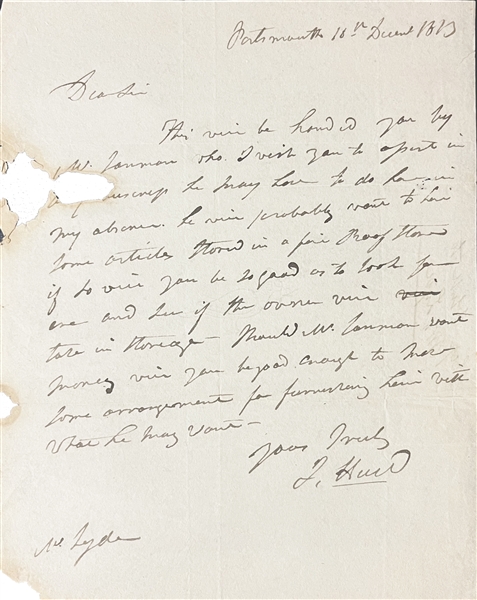 Portsmouth 16th Decemr 1813
Dear Sir
This will be handed you by
Mr. Lanman who I wish you to assist in
any business he may have to do here in
my absence. he will probably want to have
some articles Stored in a fire Proof Store
if so will you be so good as to look for
one and see if the owner will
take in Storeage - Should Mr. Lanman want
money will you be good enough to make
some arrangement for furnishing him with
what he may want -
Yours Truly
J. Hurd
Mr